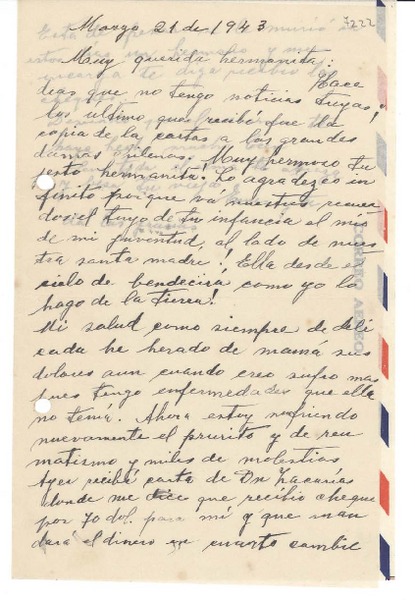 7222
Marzo 21 de 1943
Muy querida hermanita:
Hace
dias que no tengo noticias tuyas!
lo ultimo que recibi fue la
copia de la cartas a las grandes
damas chilenas. Muy hermoso tu
jesto hermanita. Lo agradezco in
finito porque va nuestros recuer
dos el tuyo de tu infancia el mio
de mi juventud, al lado de nues
tra santa madre! Ella desde el
cielo te bendecira como yo lo
hago de la tierra!
Mi salud como siempre de deli
cada he herado de mamá sus
dolores aun cuando creo sufro mas
pues tengo enfermedades que ella
no tenía. Ahora estoy sufriendo
nuevamente el prurito y de reu
matismo y miles de molestias
Ayer recibí carta de Dn Zacarías
donde me dice que recibio cheque
por 70 dol. para mí y que man
dará el dinero en cuarto cambie
CORREO AEREO